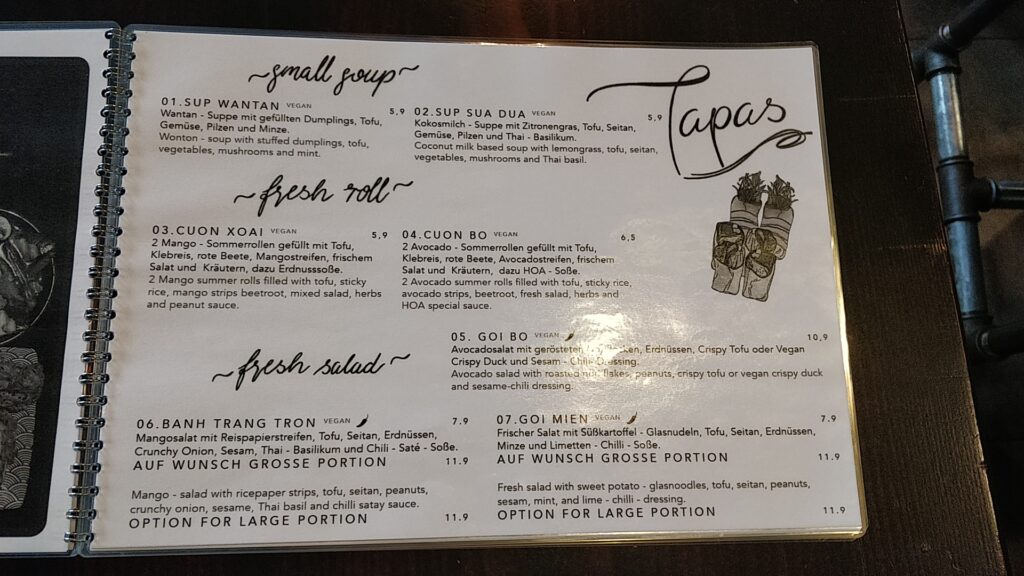 Tapas
~small soup~
01.SUP WANTAN VEGAN 5,9
Wantan - Suppe mit gefüllten Dumplings, Tofu,
Gemüse, Pilzen und Minze.
Wonton - soup with stuffed dumplings, tofu,
vegetables, mushrooms and mint.
02.SUP SUA DUA VEGAN 5,9
Kokosmilch - Suppe mit Zitronengras, Tofu, Seitan,
Gemüse, Pilzen und Thai - Basilikum.
Coconut milk based soup with lemongrass, tofu, seitan,
vegetables, mushrooms and Thai basil.
~fresh roll~
03.CUON XOAI VEGAN 5,9
2 Mango - Sommerrollen gefüllt mit Tofu,
Klebreis, rote Beete, Mangostreifen, frischem
Salat und Kräutern, dazu Erdnusssoße.
2 Mango summer rolls filled with tofu, sticky
rice, mango strips beetroot, mixed salad, herbs
and peanut sauce.
04.CUON BO VEGAN 6,5
2 Avocado - Sommerrollen gefüllt mit Tofu,
Klebreis, rote Beete, Avocadostreifen, frischem
Salat und Kräutern, dazu HOA - Soße.
2 Avocado summer rolls filled with tofu, sticky rice,
avocado strips, beetroot, fresh salad, herbs and
HOA special sauce.
~fresh salad~
05. GOI BO VEGAN 10,9
Avocadosalat mit gerösteten Erdnüssen, Crispy Tofu oder Vegan
Crispy Duck und Sesam - Chili - Dressing.
Avocado salad with roasted flakes, peanuts, crispy tofu or vegan crispy duck
and sesame-chili dressing.
06.BANH TRANG TRON VEGAN 7.9
Mangosalat mit Reispapierstreifen, Tofu, Seitan, Erdnüssen,
Crunchy Onion, Sesam, Thai - Basilikum und Chili - Saté - Soße.
AUF WUNSCH GROSSE PORTION 11.9
Mango - salad with ricepaper strips, tofu, seitan, peanuts,
crunchy onion, sesame, Thai basil and chilli satay sauce.
OPTION FOR LARGE PORTION 11.9
07.GOI MIEN VEGAN 7.9
Frischer Salat mit Süßkartoffel - Glasnudeln, Tofu, Seitan, Erdnüssen,
Minze und Limetten - Chilli - Soße.
AUF WUNSCH GROSSE PORTION 11.9
Fresh salad with sweet potato - glasnoodles, tofu, seitan, peanuts,
sesam, mint, and lime - chilli - dressing.
OPTION FOR LARGE PORTION 11.9